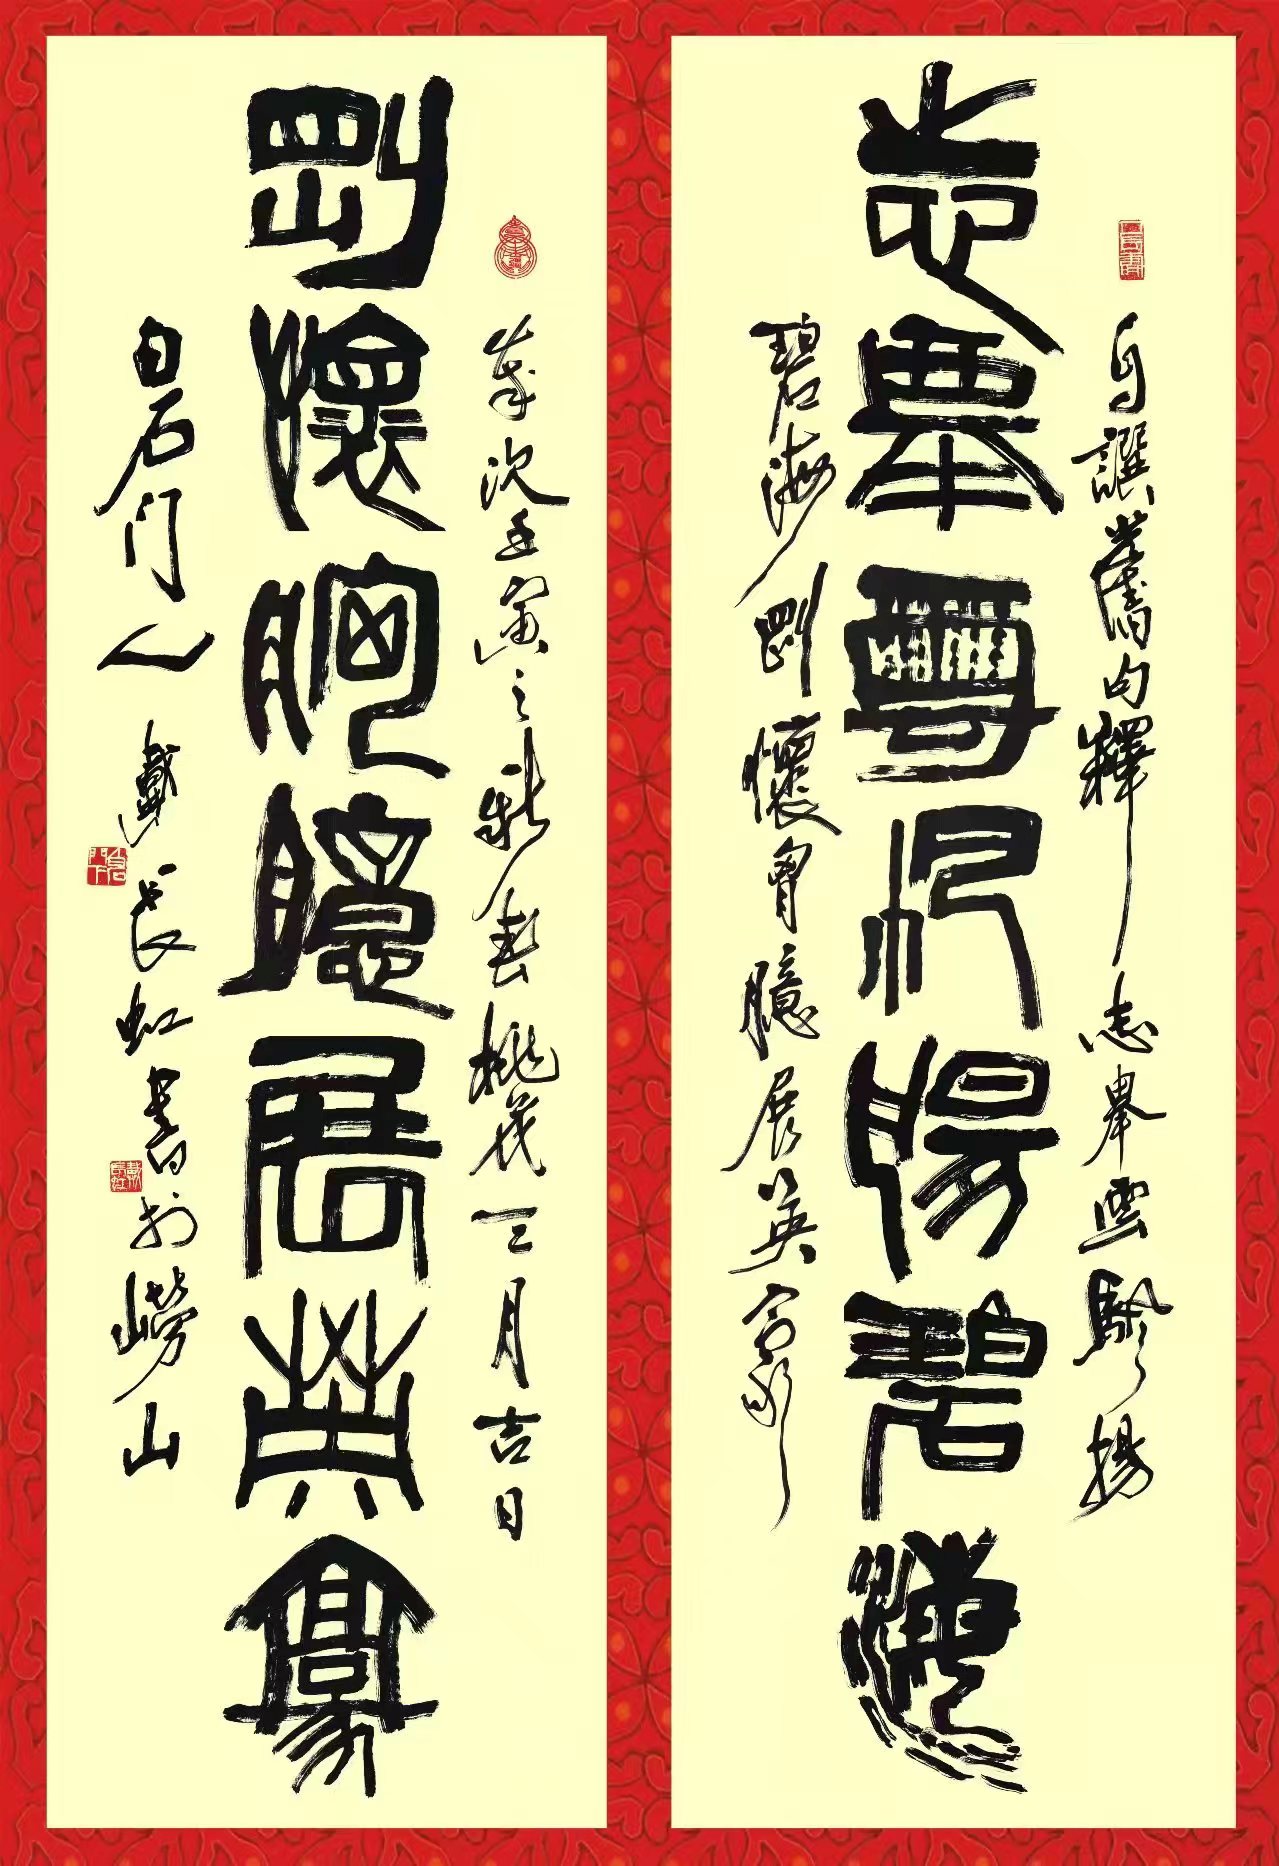 自譔舊句釋志舉雲颿揚
志舉雲帆揚碧海
碧海剛懷胷臆展英豪
歲次壬寅之新春桃花三月吉日
剛懷胸臆展英豪
白石門人戴長虹書於嶗山
戴長虹